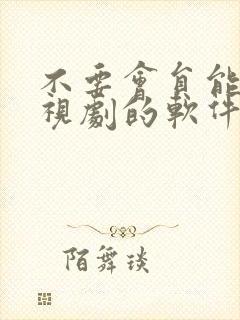 不要會員能
視劇的軟件
陌舞琰